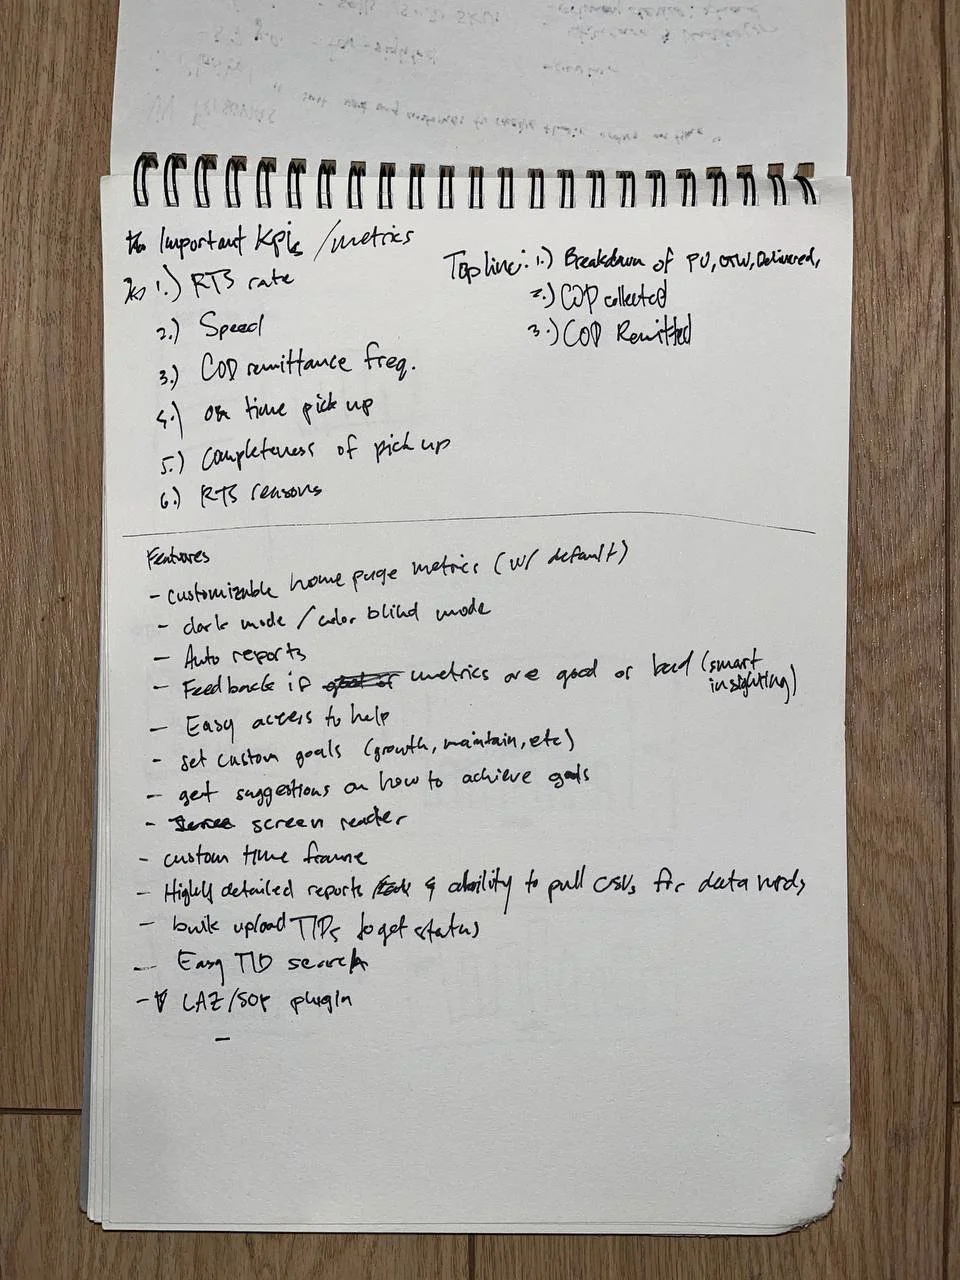 Important KPIs /metrics
1.) RTS rate
2.) Speed
3.) COD remittance freq.
4.) on time pick up
5.) Completeness of pick up
6.) RTS reasons
Top line: 1.) Breakdown of PU, OTW, Delivered,
2.) COD collected
3.) COD Remitted
Features
- customizable home page metrics (w/ default)
- dark mode / color blind mode
- Auto reports
- Feedback if metrics are good or bad (smart
insighting)
- Easy access to help
- set custom goals (growth, maintain, etc)
- get suggestions on how to achieve goals
- screen reader
- custom time frame
- Highly detailed reports & ability to pull CSVs for data nerds
- bulk upload TIDs to get status
- Easy TID search
- LAZ/SOP plugin
-